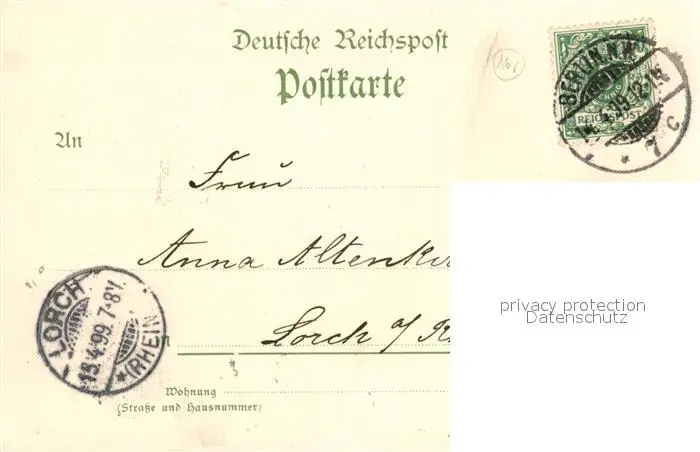 Deutsche Reichspost
Postkarte
161
BERLIN. N.W.
4.99.12-1N.
7 c
REICHSPOST
An
Frau
Anna Altenki
Lorch a/ R
LORCH
13.4.99.7-8V.
(RHEIN)
Wohnung
(Straße und Hausnummer)
privacy protection
Datenschutz